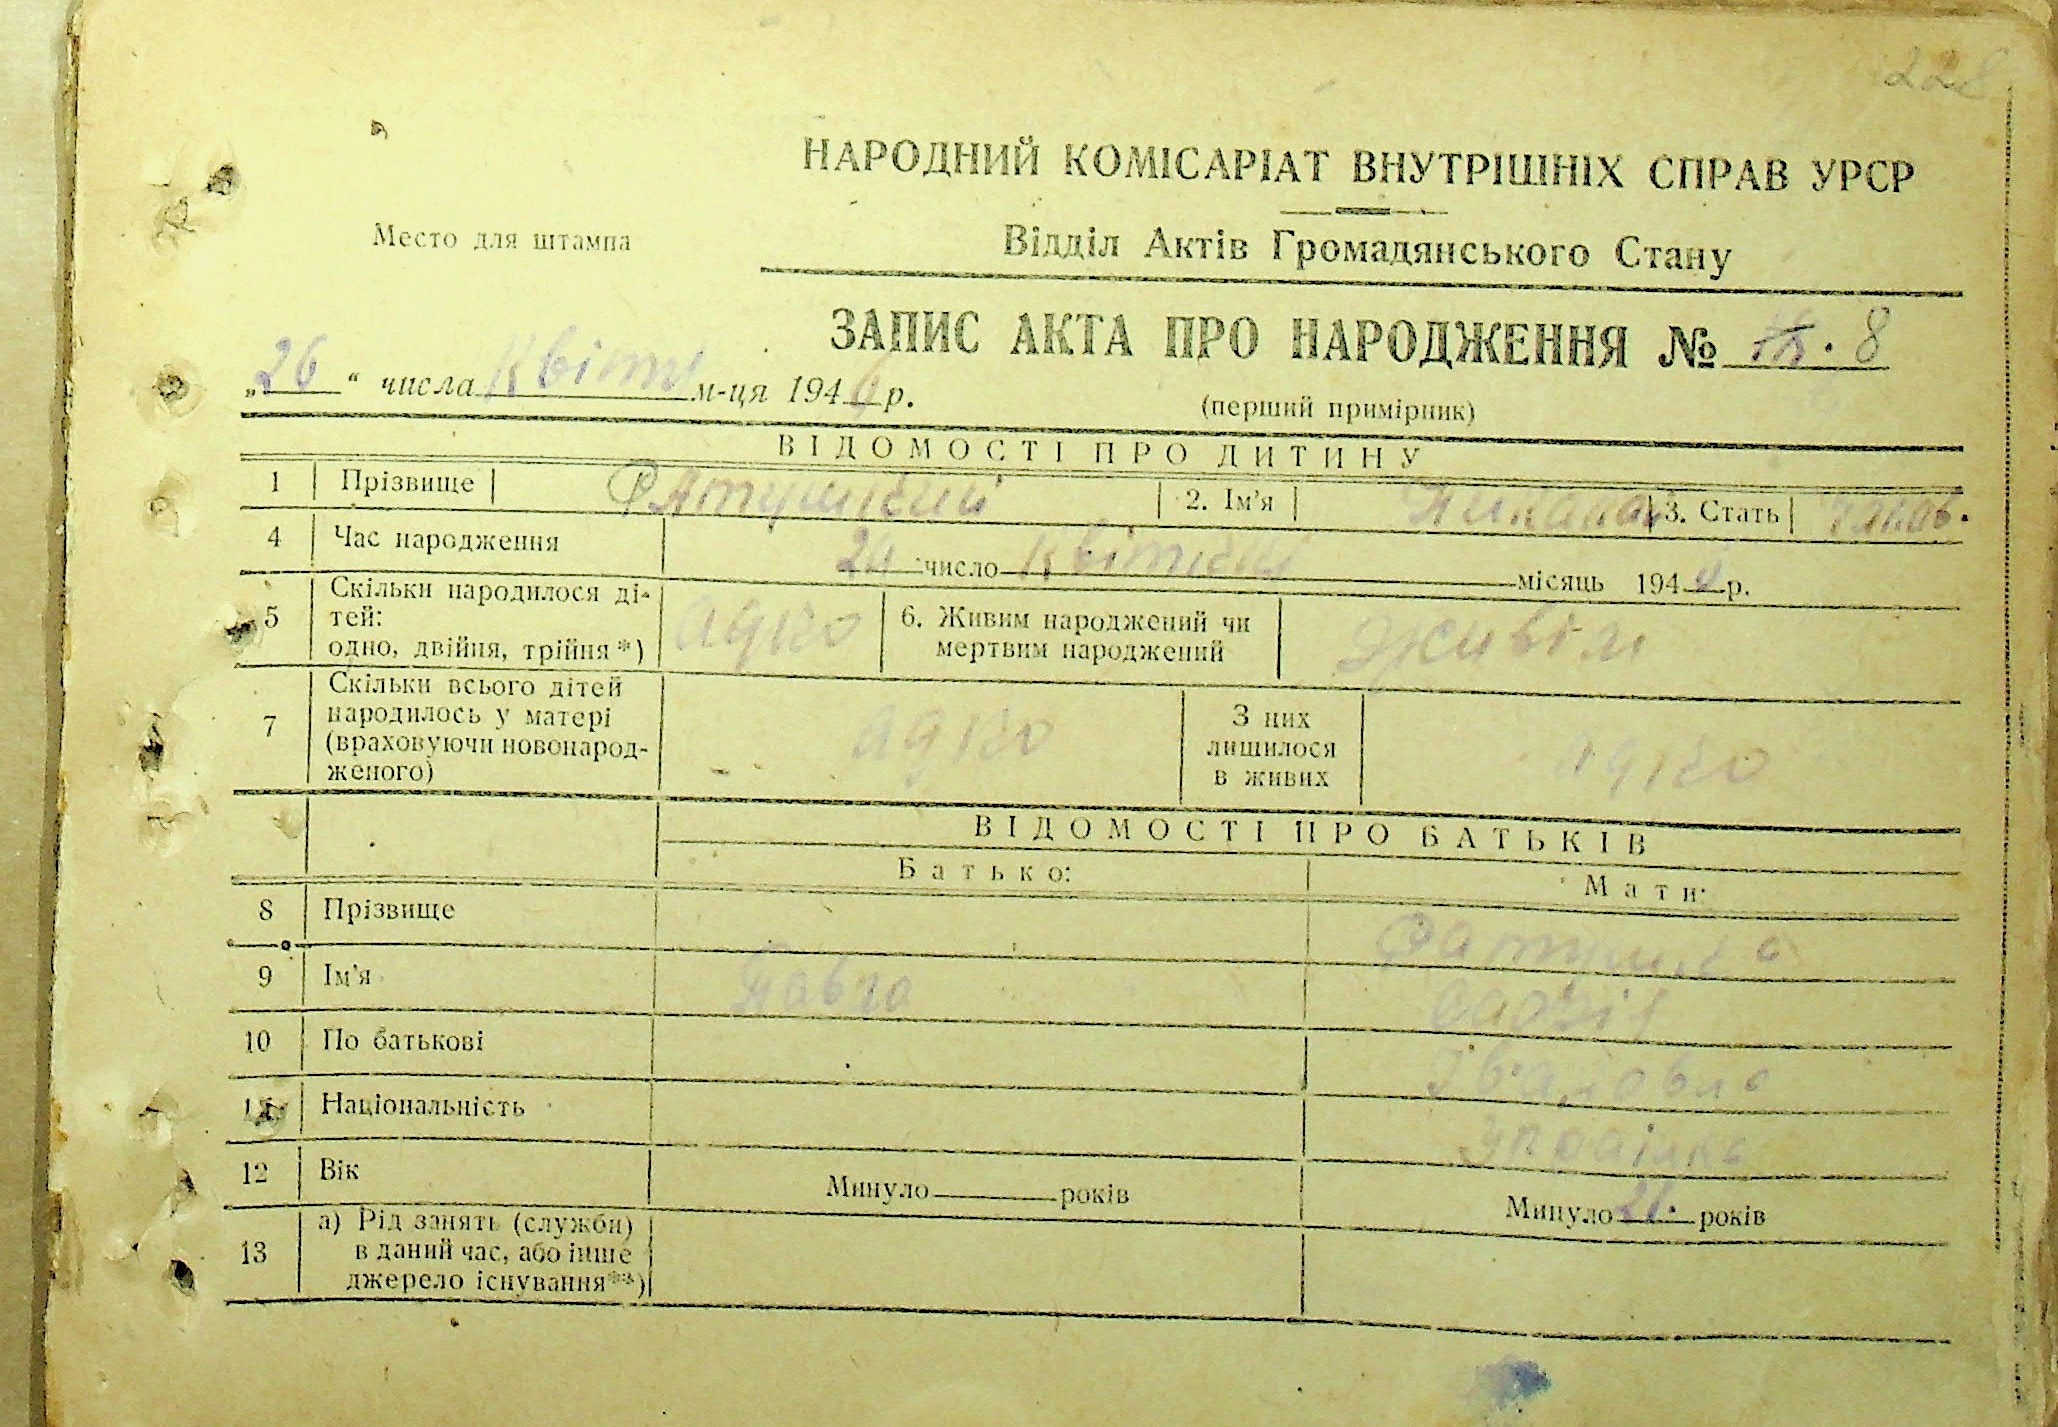 228
НАРОДНИЙ КОМІСАРІАТ ВНУТРІШНІХ СПРАВ УРСР
Место для штампа
Відділ Актів Громадянського Стану
ЗАПИС АКТА ПРО НАРОДЖЕННЯ № 8
„26“ числа Квітн м-ця 194 р.
(перший примірник)
ВІДОМОСТІ ПРО ДИТИНУ
1 Прізвище 2. Ім'я 3. Стать
4 Час народження 24 число Квітня місяць 194 р.
5 Скільки народилося ді-
тей:
одно, двійня, трійня*) адно 6. Живим народжений чи
мертвим народжений живім
7 Скільки всього дітей
народилось у матері
(враховуючи новонарод-
женого) адно З них
лишилося
в живих адно
ВІДОМОСТІ ПРО БАТЬКІВ
Батько: Мати:
8 Прізвище
9 Ім'я Павло
10 По батькові Івановна
11 Національність Українка
12 Вік Минуло років Минуло 21. років
13 а) Рід занять (служби)
в даний час, або інше
джерело існування**)